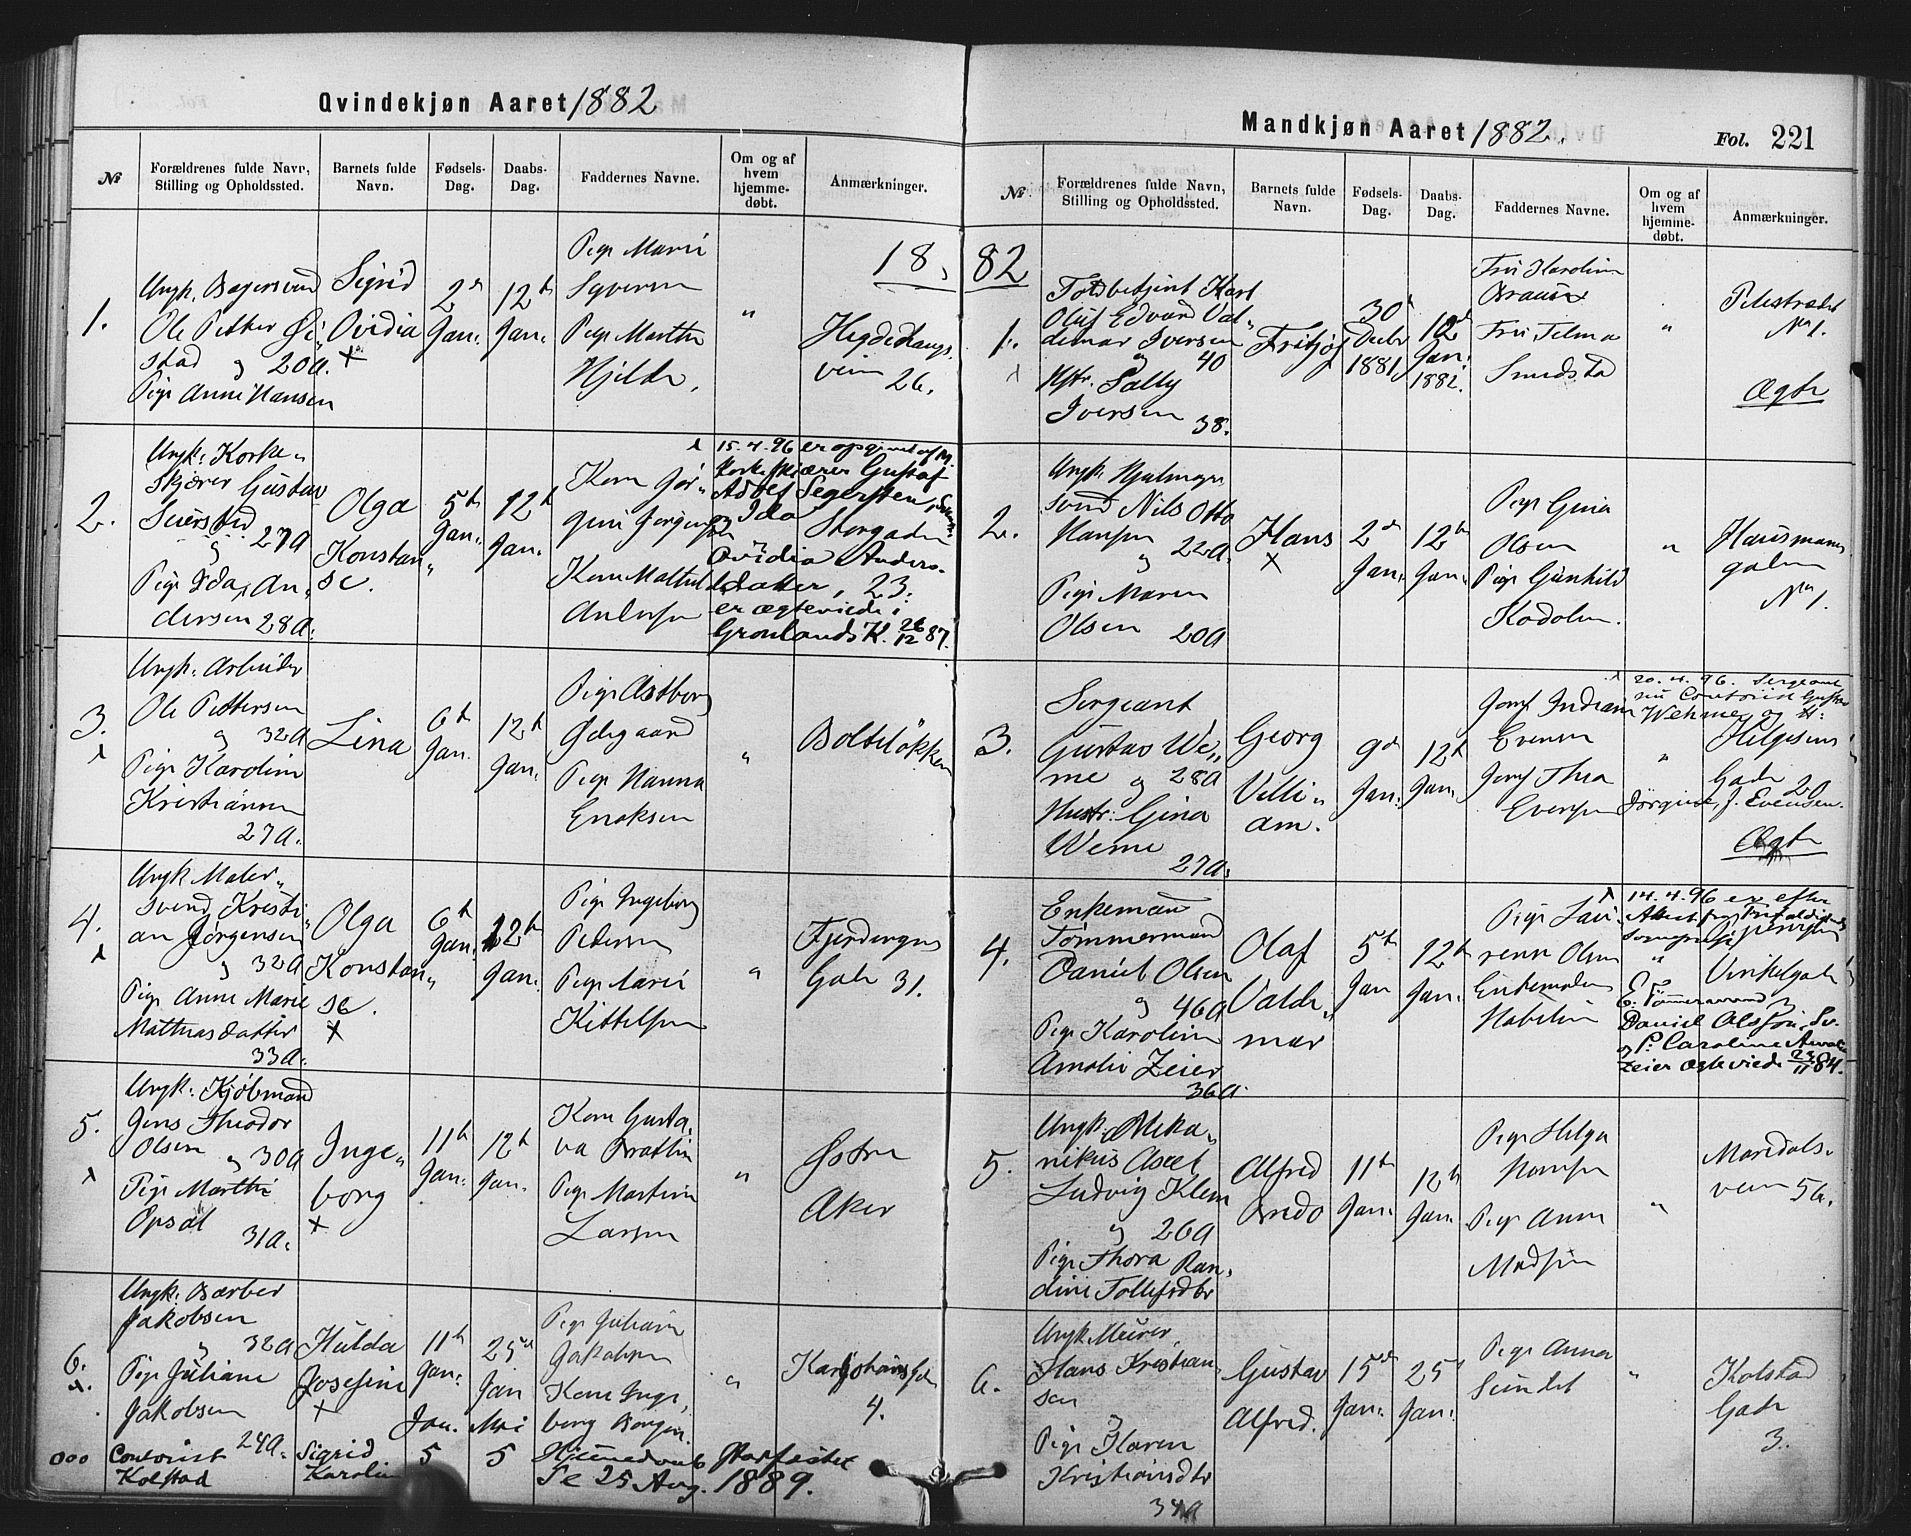 Qvindekjøn Aaret 1882
№
Forældrenes fulde Navn,
Stilling og Opholdssted.
Barnets fulde
Navn.
Fødsels-
Dag.
Daabs-
Dag.
Faddernes Navne.
Om og af
hvem
hjemme-
døbt.
Anmærkninger.
18
1.
Ungk. Bagersvend
Ole Petter
stad og 20a.
Pige Anne Hansen
Sigrid
Ovidia
2d
Jan.
12th
Jan.
Pige Marie
Syversen
Pige Marthe
Hjelde.
"
Hegdehaugs
veien
26.
2.
Ungk: Korke-
skjærer Gustav
27a
Pige Ida An
dersen 28a.
Olga
Konstan
se.
5th
Jan.
12th
Jan.
Kone Jør-
gine Jørgensen
Kone Mathilde
Andersen
15.4.96 er opgivet af
Korkeskjærer Gustaf
Adolf Segersten,
og Ida
Ovidia Anders-
datter, 23.
er ægteviede i
Grønlands K. 26/12 87.
Storgaden
3.
Ungk: Arbeider
Ole Pettersen
og 32a
Pige Karoline
Kristiansen
27a.
Lina
6th
Jan.
12th
Jan.
Pige Astborg
Ødegaard
Pige Hanna
Eriksen
"
Bolteløkken
4.
Ungk Maler-
svend Kristi
an Jørgensen
og 32a
Pige Anne Marie
Mathiasdatter
33a.
Olga
Konstan
se.
6th
Jan.
12th
Jan.
Pige Ingeborg
Pedersen
Pige
Kittelsen
"
Fjerdingens
Gade 31.
5.
Ungk: Kjøbmand
Jens Theodor
Olsen og 30a
Pige Marthe
Opsal
31a.
Inge-
borg
11th
Jan.
12th
Jan.
Kone Gusta
va Bratlie
Pige Martine
Larsen
"
Østre
Aker
6.
Ungk: Barber
Jakobsen
og 32a
Pige Juliane
Jakobsen
24a.
Hulda
Josefine
11th
Jan.
25d
Jan
Pige Juliane
Jakobsen
Kone Inge
borg Borgen.
"
Karl Johans Gde
4.
000
Contorist
Kolstad
Sigrid
Karoline
Jan.
5
Mai
5
Hjemedøbt Stadfæstet
Se 25 Aug. 1889.
Mandkjøn Aaret 1882.
Fol. 221
№
Forældrenes fulde Navn,
Stilling og Opholdssted.
Barnets fulde
Navn.
Fødsels-
Dag.
Daabs-
Dag.
Faddernes Navne.
Om og af
hvem
hjemme-
døbt.
Anmærkninger.
82
1.
Toldbetjent Karl
Olaf Edvard Val-
demar Iversen
og 40
Hstr. Sally
Iversen 38.
Fritjof
30d
Decbr
1881
12d
Jan.
1882.
Fru Karoline
Fru Telma
"
Pilestrædet
No 1.
Ægte
2.
Ungk Hjulmager
svend Nils Otto
Hansen
og 22a.
Pige Maren
Olsen 20a
Hans
2d
Jan.
12th
Jan.
Pige Gina
Olsen
Pige Gunhild
"
Hausmanns
gaden
No 1.
3.
Sergeant
Gustav We-
me og 28a
Hustr: Gina
Weme
27a.
Georg
Villi-
am.
9d
Jan.
12th
Jan.
Evensen
Jomf Thea
Evensen
20.4.96. Sergeant
nu Contorist Gustav
Wehme og H:
Jørgine, f. Evensen.
"
Helgesens
Gade 20
Ægte
4.
Enkemand
Tømmermand
Daniel Olsen
og 46a
Pige Karoline
Amalie Zeier
36a.
Olaf
Valde
mar
5th
Jan
12th
Jan.
Pige Lau
rense Olsen
14.4.96 er efter
"
Vinkelgade
3
E. Tømmermand
Daniel Olsson,
og P. Caroline Amalie
Zeier ægteviede 23/11 84.
5.
Ungk. Meka-
nikus Axel
Ludvig Klem
og 26a
Pige Thora Ran-
dine Tollefsdtr
Alfred
11th
Jan.
12th
Jan.
Pige Helga
Hansen
Pige Anne
Madsen
"
Maridals-
veien 56.
6.
Ungk. Murer
Hans Kristian
sen
og
Pige Karen
Kristiansdtr
34a
Gustav
Alfred.
15d
Jan.
25d
Jan.
Pige Anna
Sundet
"
Kolstad
Gade
3.